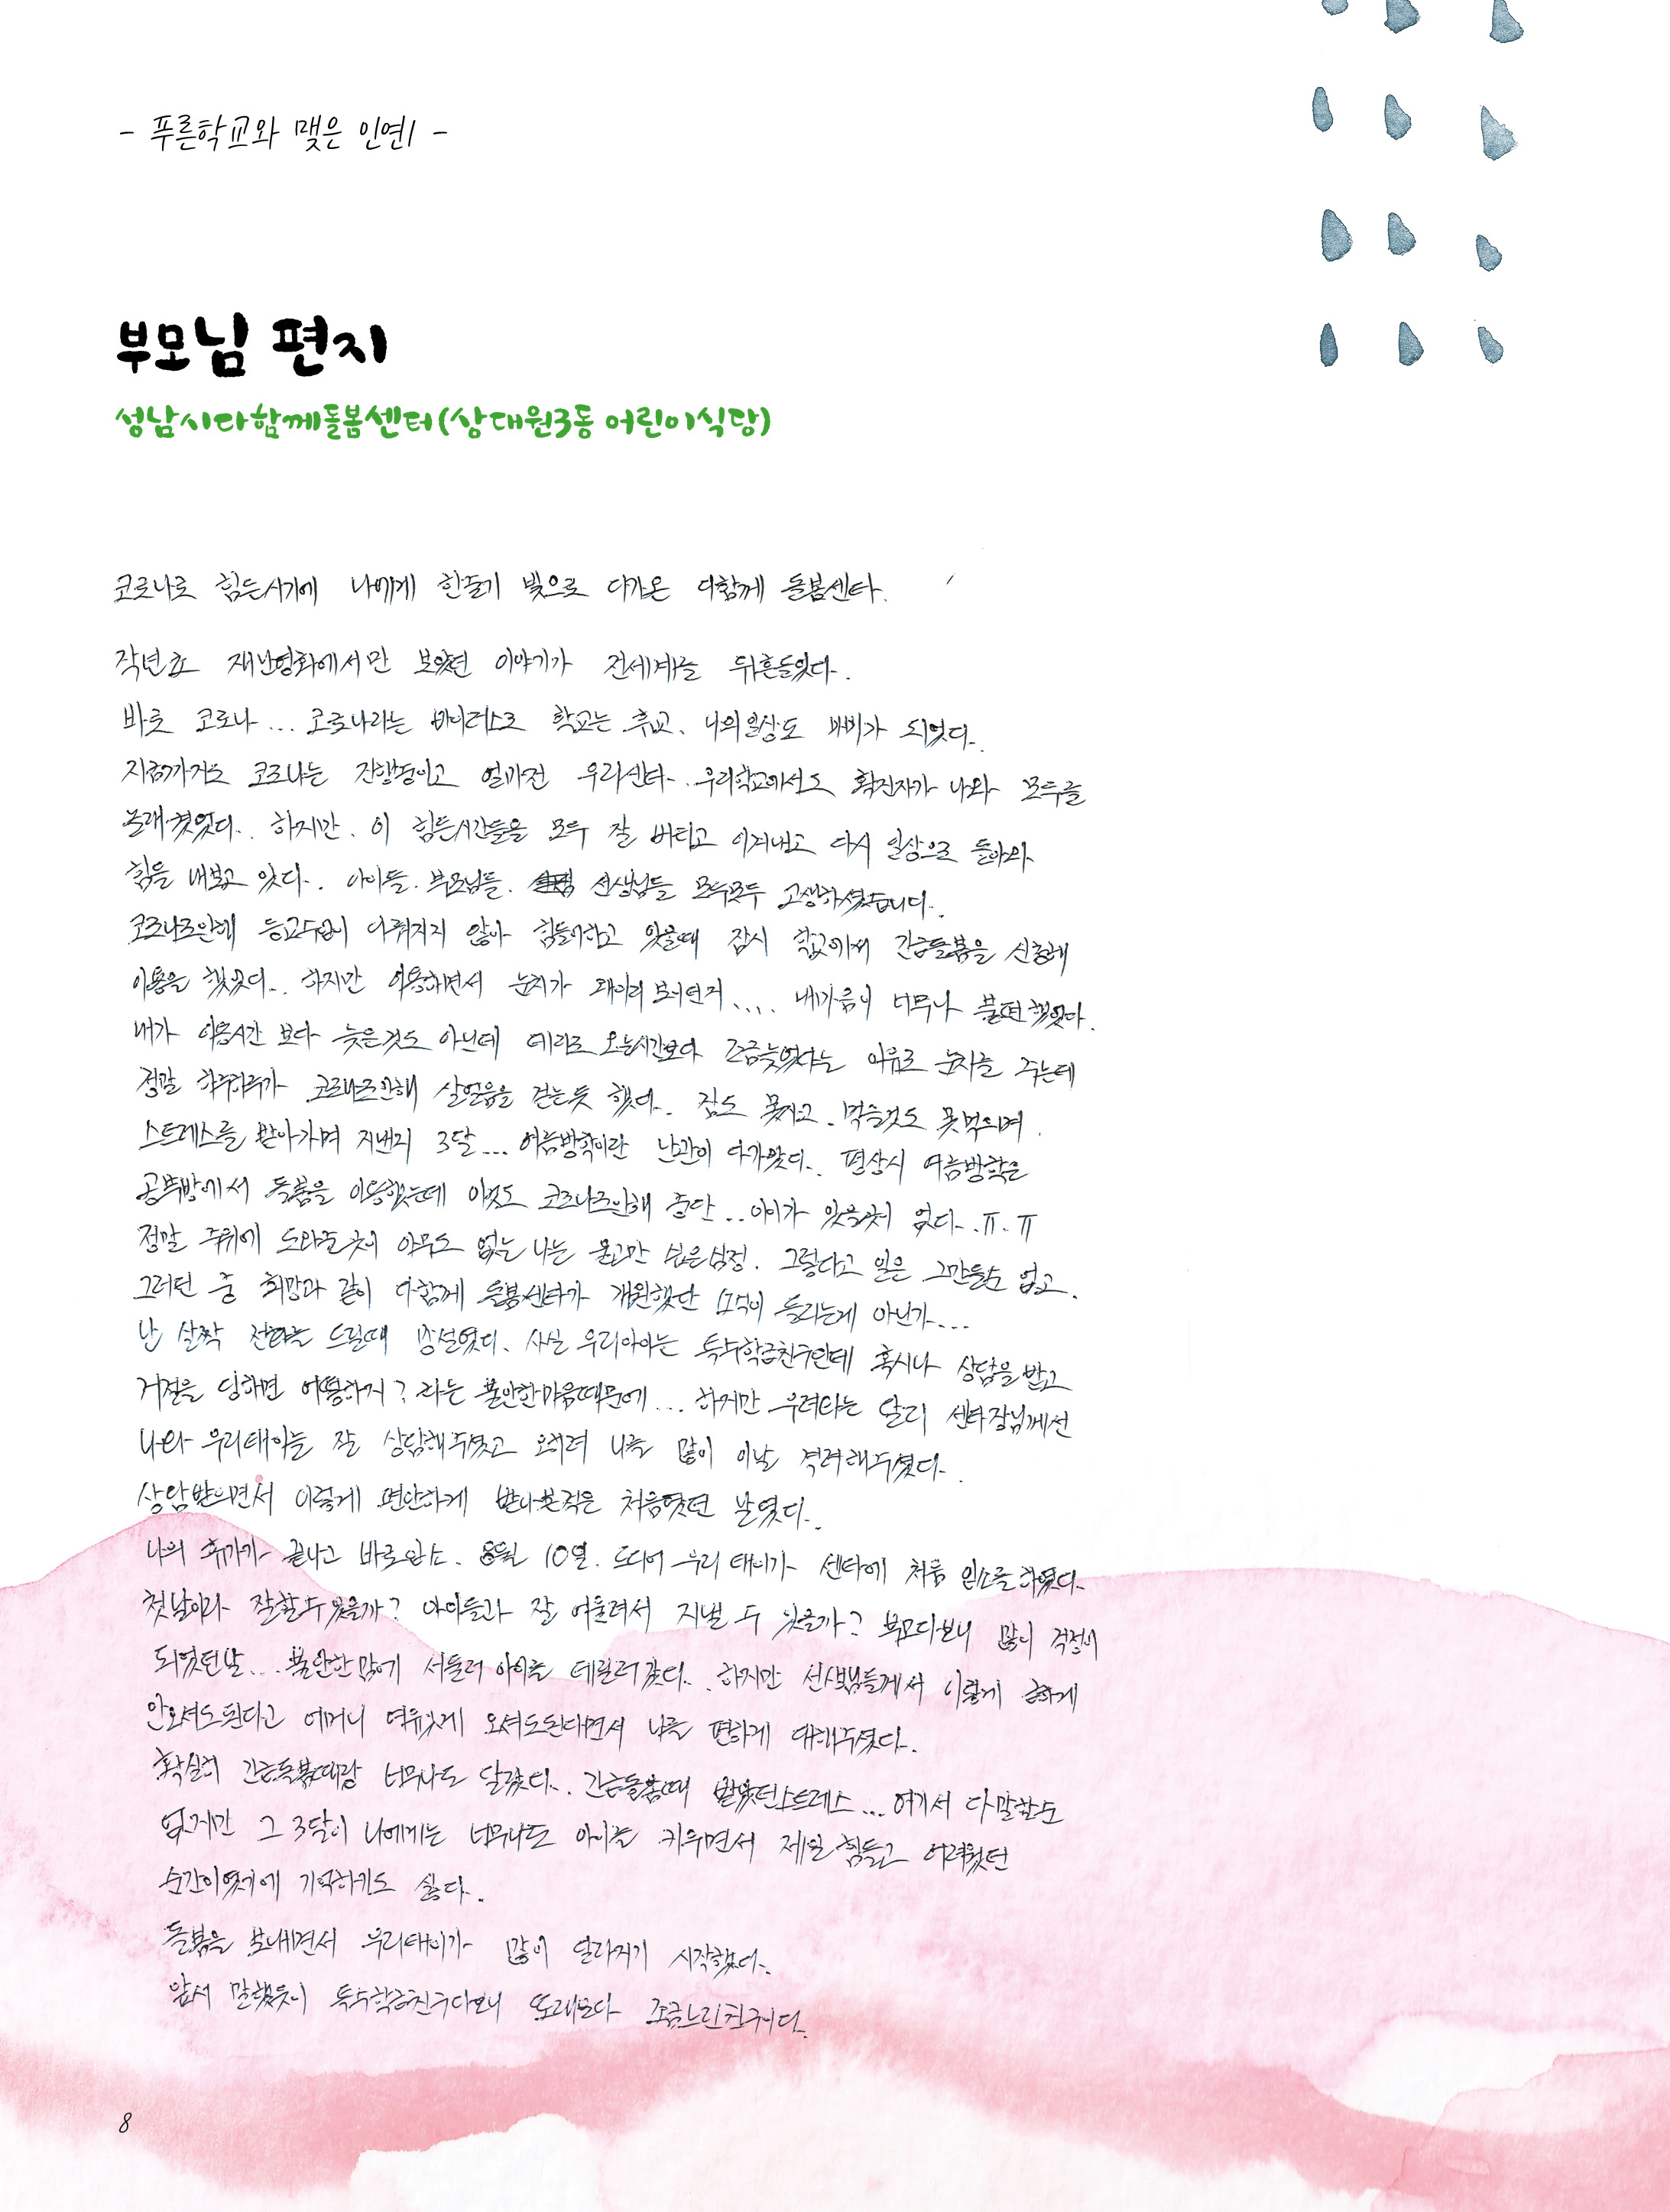 - 푸른학교와 맺은 인연1 -
부모님 편지
성남시다함께돌봄센터(상대원3동 어린이식당)
코로나로 힘든시기에 나에게 한줄기 빛으로 다가온 다함께 돌봄센타.
작년초 재난영화에서만 보았던 이야기가 전세계를 뒤흔들었다.
바로 코로나... 코로나라는 바이러스로 학교는 휴교, 나의일상도 마비가 되었다.
지금까지도 코로나는 진행중이고 얼마전 우리센타, 우리학교에서도 확진자가 나와 모두를
놀래켰었다. 하지만, 이 힘든시간들을 모두 잘 버티고 이겨내고 다시 일상으로 돌아와
힘을 내보고 있다. 아이들, 부모님들, 선생님들 모두모두 고생하셨습니다.
코로나로인해 등교수업이 이뤄지지 않아 힘들어하고 있을때 잠시 학교에서 긴급돌봄을 신청해
이용을 했었다. 하지만 이용하면서 눈치가 왜이리 보이던지.... 내마음이 너무나 불편했었다.
내가 이용시간 보다 늦은것도 아닌데 데리러 오는시간보다 조금늦었다는 이유로 눈치를 주는데
정말 하루하루가 코로나로인해 살얼음을 걷는듯 했다. 잠도 못자고, 먹을것도 못먹으며
스트레스를 받아가며 지낸지 3달... 여름방학이란 난관이 다가왔다. 평상시 여름방학은
공부방에서 돌봄을 이용했는데 이것도 코로나로인해 중단.. 아이가 있을곳이 없다..ㅠ.ㅠ
정말 주위에 도와줄곳이 아무도 없는 나는 울고만 싶은심정. 그렇다고 일은 그만둘순 없고.
그러던 중 희망과 같이 다함께 돌봄센타가 개원했단 소식이 들리는게 아닌가...
난 살짝 전화를 드릴때 망설였다. 사실 우리아이는 특수학급친구인데 혹시나 상담을받고
거절을 당하면 어떻하지? 라는 불안한마음때문에... 하지만 우려와는 달리 센타장님께선
나와 우리태이를 잘 상담해주셨고 오히려 나를 많이 이날 격려해주셨다.
상담받으면서 이렇게 편안하게 받아본적은 처음이였던 날였다.
나의 휴가가 끝나고 바로입소. 8월 10일. 드디어 우리 태이가 센타에 처음 입소를하였다.
첫날이라 잘할수있을까? 아이들과 잘 어울려서 지낼 수 있을까? 부모다보니 많이 걱정이
되었던날... 불안한맘에 서둘러 아이를 데릴러갔다. 하지만 선생님들께서 이렇게 급하게
안오셔도된다고 어머니 여유있게 오셔도된다면서 나를 편하게 대해주셨다.
확실히 긴급돌봄때랑 너무나도 달랐다. 긴급돌봄때 받았던스트레스... 여기서 다말할순
없지만 그 3달이 나에게는 너무나도 아이를 키우면서 제일 힘들고 어려웠던
순간이였기에 기억하기도 싫다.
돌봄을 보내면서 우리태이가 많이 달라지기 시작했다.
앞서 말했듯이 특수학급친구다보니 또래보다 조금느린친구이다.
8